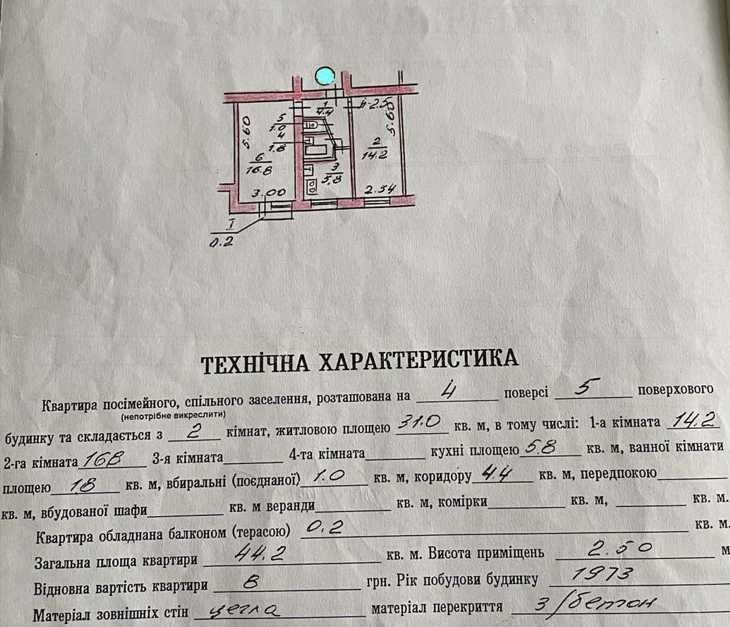 1
4.4
h-2.5
5
1.0
4
1.8
5.60
5.60
2
14.2
6
16.8
3
5.8
3.00
2.54
I
0.2
ТЕХНІЧНА ХАРАКТЕРИСТИКА
Квартира посімейного, спільного заселення, розташована на 4 поверсі 5 поверхового
(непотрібне викреслити)
будинку та складається з 2 кімнат, житловою площею 31.0 кв. м, в тому числі: 1-а кімната 14.2
2-га кімната 16.8 3-я кімната 4-та кімната кухні площею 5.8 кв. м, ванної кімнати
площею 1.8 кв. м, вбиральні (поєднаної) 1.0 кв. м, коридору 4.4 кв. м, передпокою
кв. м, вбудованої шафи кв. м веранди кв. м, комірки кв. м, кв. м.
Квартира обладнана балконом (терасою) 0.2 кв. м.
Загальна площа квартири 44.2 кв. м. Висота приміщень 2.50 м
Відновна вартість квартири 8 грн. Рік побудови будинку 1973
Матеріал зовнішніх стін цегла матеріал перекриття з/бетон